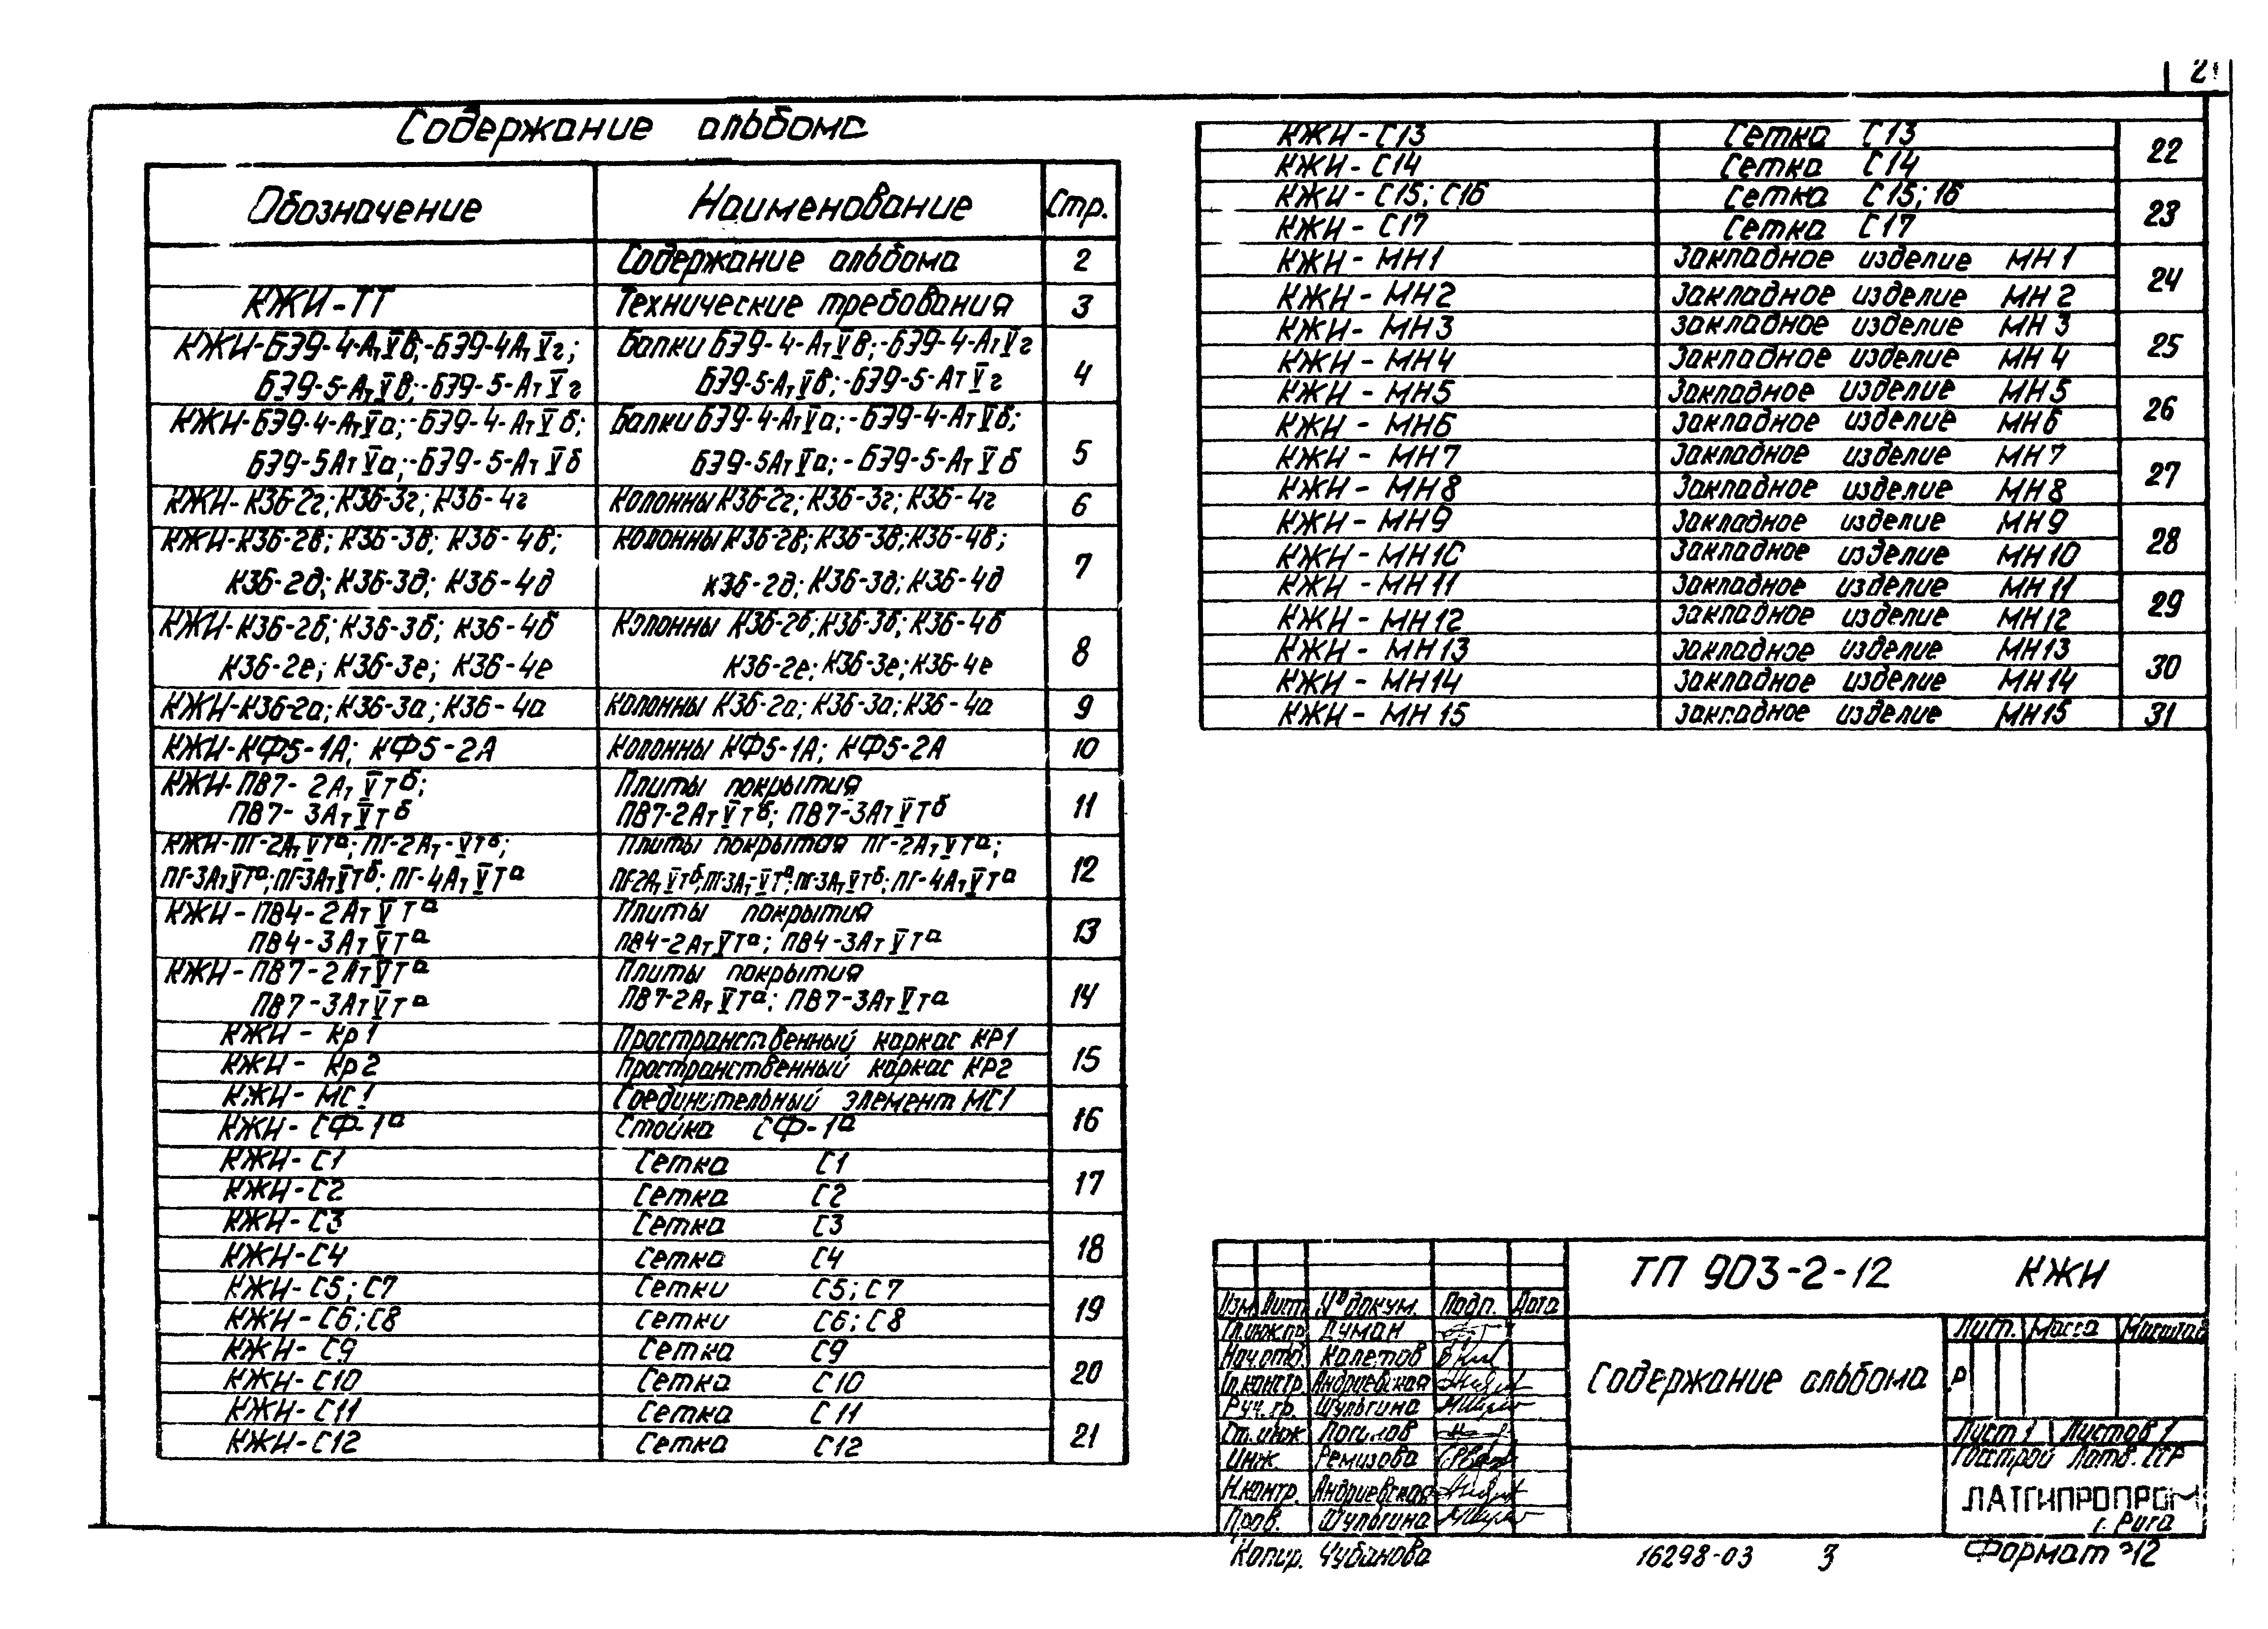 2
Содержание альбома
Обозначение Наименование Стр.
Содержание альбома 2
КЖИ-ТТ Технические требования 3
КЖИ-БЭ9-4-АтVв;-БЭ9-4АтVг; Балки БЭ9-4-АтVв;-БЭ9-4-АтVг
БЭ9-5-АтVв;-БЭ9-5-АтVг БЭ9-5-АтVв;-БЭ9-5-АтVг 4
КЖИ-БЭ9-4-АтVа;-БЭ9-4-АтVб; Балки БЭ9-4-АтVа;-БЭ9-4-АтVб;
БЭ9-5АтVа;-БЭ9-5-АтVб БЭ9-5АтVа;-БЭ9-5-АтVб 5
КЖИ-К36-2г; К36-3г; К36-4г Колонны К36-2г; К36-3г; К36-4г 6
КЖИ-К36-2в; К36-3в; К36-4в; Колонны К36-2в; К36-3в; К36-4в;
К36-2д; К36-3д; К36-4д К36-2д; К36-3д; К36-4д 7
КЖИ-К36-2б; К36-3б; К36-4б Колонны К36-2б; К36-3б; К36-4б
К36-2е; К36-3е; К36-4е К36-2е; К36-3е; К36-4е 8
КЖИ-К36-2а; К36-3а; К36-4а Колонны К36-2а; К36-3а; К36-4а 9
КЖИ-КФ5-1А; КФ5-2А Колонны КФ5-1А; КФ5-2А 10
КЖИ-ПВ7-2АтVТб; Плиты покрытия
ПВ7-3АтVТб ПВ7-2АтVТб; ПВ7-3АтVТб 11
КЖИ-ПГ-2АтVТа; ПГ-2Ат-VТб; Плиты покрытая ПГ-2АтVТа;
ПГ-3АтVТа; ПГ-3АтVТб; ПГ-4АтVТа ПГ-2АтVТб; ПГ-3Ат-VТа; ПГ-3АтVТб; ПГ-4АтVТа 12
КЖИ-ПВ4-2АтVТа Плиты покрытия
ПВ4-3АтVТа ПВ4-2АтVТа; ПВ4-3АтVТа 13
КЖИ-ПВ7-2АтVТа Плиты покрытия
ПВ7-3АтVТа ПВ7-2АтVТа; ПВ7-3АтVТа 14
КЖИ-Кр1 Пространственный каркас КР1
КЖИ-Кр2 Пространственный каркас КР2 15
КЖИ-МС1 Соединительный элемент МС1
КЖИ-СФ-1а Стойка СФ-1а 16
КЖИ-С1 Сетка С1
КЖИ-С2 Сетка С2 17
КЖИ-С3 Сетка С3
КЖИ-С4 Сетка С4 18
КЖИ-С5; С7 Сетки С5; С7
КЖИ-С6; С8 Сетки С6; С8 19
КЖИ-С9 Сетка С9
КЖИ-С10 Сетка С10 20
КЖИ-С11 Сетка С11
КЖИ-С12 Сетка С12 21
КЖИ-С13 Сетка С13
КЖИ-С14 Сетка С14 22
КЖИ-С15; С16 Сетка С15; 16
КЖИ-С17 Сетка С17 23
КЖИ-МН1 Закладное изделие МН1
КЖИ-МН2 Закладное изделие МН2 24
КЖИ-МН3 Закладное изделие МН3
КЖИ-МН4 Закладное изделие МН4 25
КЖИ-МН5 Закладное изделие МН5
КЖИ-МН6 Закладное изделие МН6 26
КЖИ-МН7 Закладное изделие МН7
КЖИ-МН8 Закладное изделие МН8 27
КЖИ-МН9 Закладное изделие МН9
КЖИ-МН10 Закладное изделие МН10 28
КЖИ-МН11 Закладное изделие МН11
КЖИ-МН12 Закладное изделие МН12 29
КЖИ-МН13 Закладное изделие МН13
КЖИ-МН14 Закладное изделие МН14 30
КЖИ-МН15 Закладное изделие МН15 31
ТП 903-2-12 КЖИ
Изм. Лист №докум. Подп. Дата
Гл.инж.пр Думан
Нач.отд. Калетов
Гл.констр. Андриевская
Рук. гр. Шульгина
Ст.инж.
Инж. Ремизова
Н.контр. Андриевская
Пров. Шульгина
Содержание альбома
Лит. Масса Масштаб
Р
Лист 1 Листов 1
Госстрой Латв. ССР
ЛАТГИПРОПРОМ
г. Рига
Копир. Чубанова 16298-03 3 Формат 12